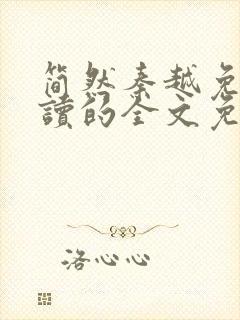 简然秦越免
读的全文免
洛心心